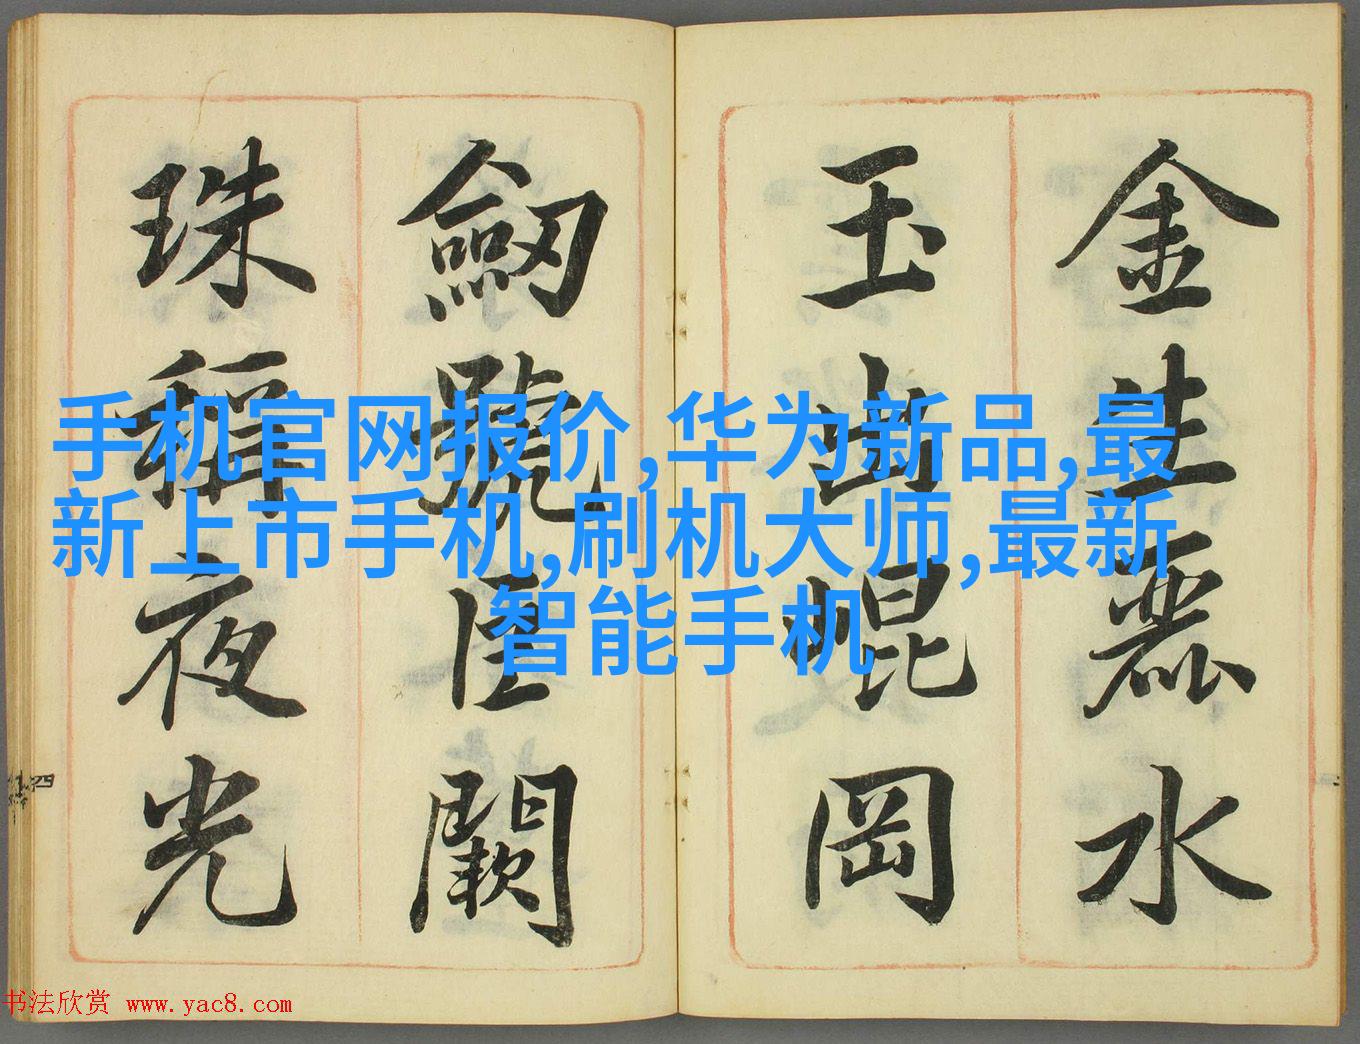 金生麗水
玉出崐岡
劒號巨闕
珠稱夜光
手机官网报价,华为新品,最
新上市手机,刷机大师,最新
智能手机
书法欣赏 www.yac8.com